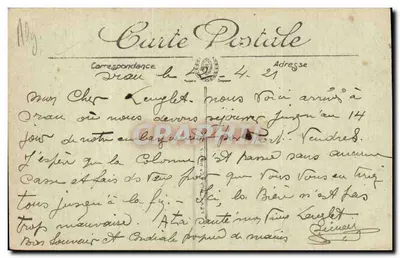 Alg.
Carte Postale
Correspondance Adresse
Oran le 4. 21
Mon Cher Lenglet. nous voici arrivés à
Oran où nous devons séjourner jusqu'au 14
jour de notre Vendres
J'espère que la Colonne s'est passé sans aucune
Casse et fais des Vœux pour que Vous Vous en
tous jusqu'à la fin. Ici, la Bière n'est pas
trop mauvaise. A ta santé mon Vieux Lenglet
Bon Souvenir et Cordiale poignée de mains